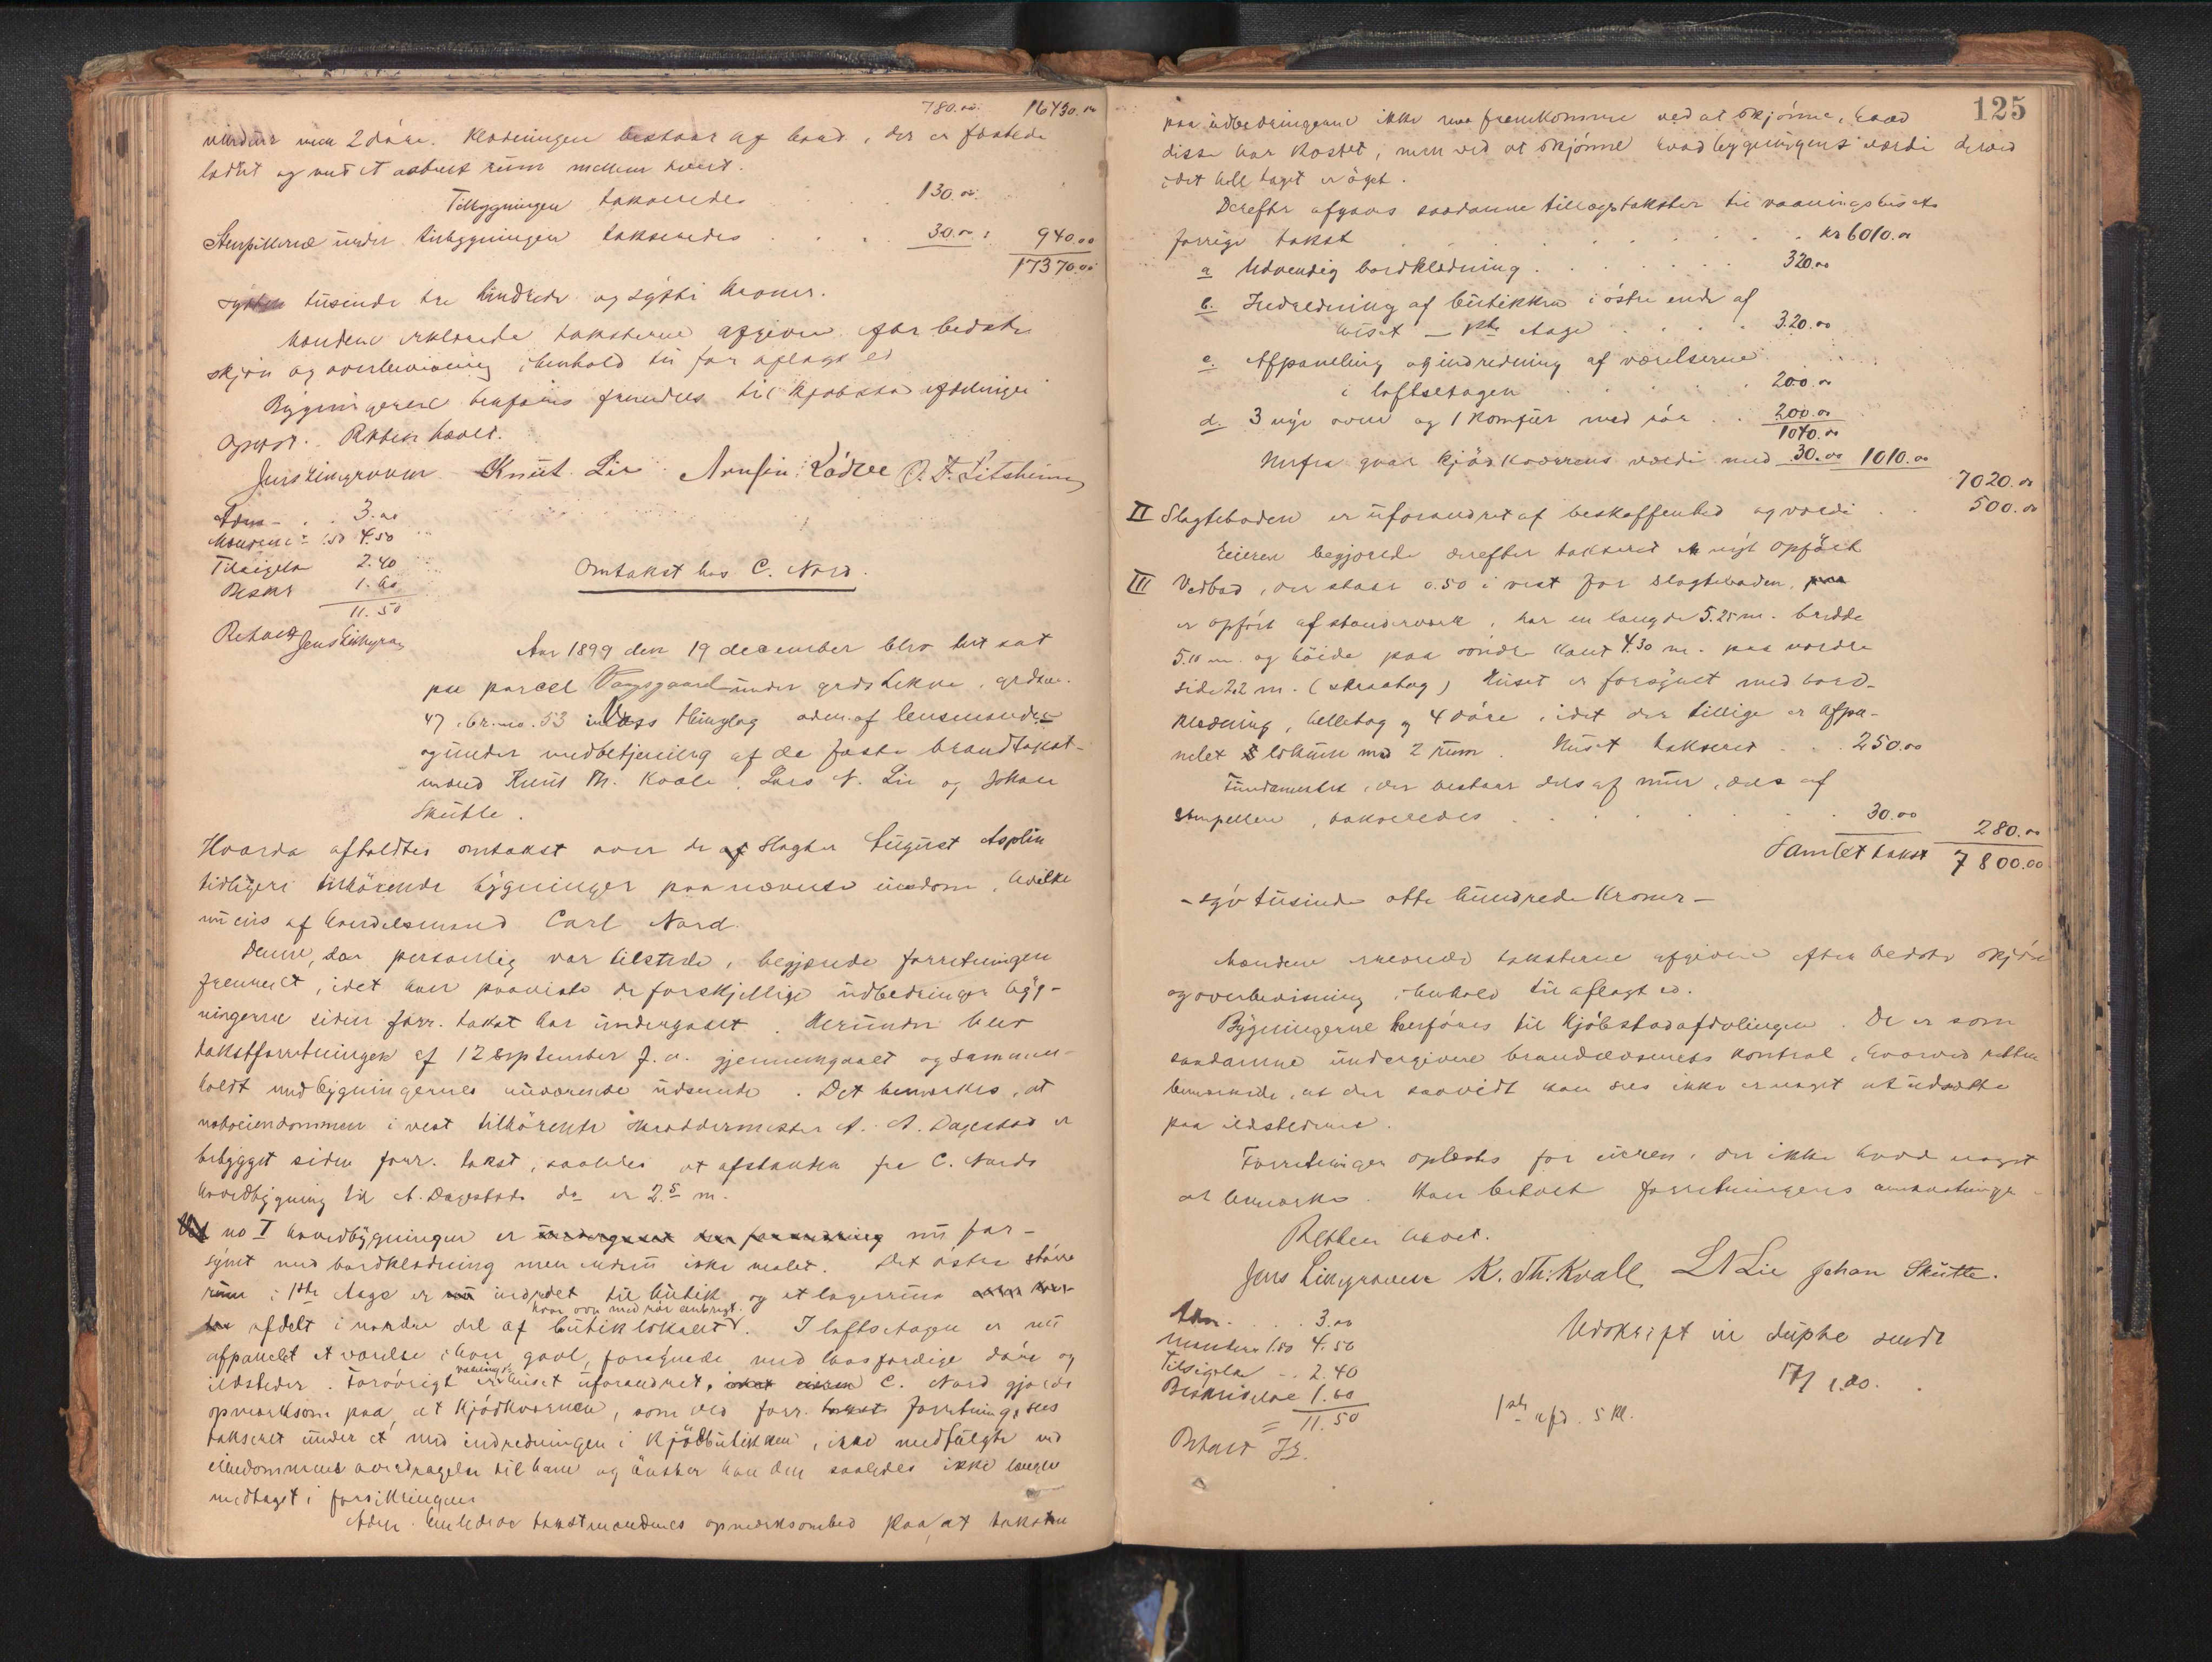 780.00. 16430.00
vinduer 2 døre. Klædningen bestaar af bord, der er fæstede
lodret og med et aabent rum mellem hvert.
Tilbygningen takseredes . . . 130.00.
Stenpillerne under tilbygningen takseredes . . . . 30.00 : 940.00
17370.00
sytten tusinde tre hundrede og sytti kroner.
Mændene erklærede taksterne afgivne efter bedste
skjøn og overbevisning i henhold til før aflagt ed
Bygningerne henføres fremdeles til Kjøbstadafdelingen
Oplæst. Retten hævet.
Jens Lingraven Knut Lie Arnfin Rødve O. T. Litsheim
Adm - . . 3.00
Mændene à 1.50 4.50
Tilsigelse 2.40
Beskr 1.60
11.50
Betalt Jens Lingraven
Omtakst hos C. Nord.
Aar 1899 den 19 december blev ret sat
paa parcel Vangsgaard under grds Lekve, grdsno.
47, br.no. 53 i Voss thinglag adm. af lensmanden
og under medbetjening af de faste brandtakst-
mænd Knut Th. Kvale, Lars N. Lie og Johan
Skutle.
Hvorda afholdtes omtakst over de af slagter August Asplin
tidligere tilhørende bygninger paa nævnte eiendom, hvilke
nu eies af handelsmand Carl Nord.
Denne, der personlig var tilstede, begjærede forretningen
fremmet, idet han paaviste de forskjellige udbedringer byg-
ningerne siden forr. takst har undergaaet. Herunder blev
takstforretningen af 12 september f. a. gjennemgaaet og sammen-
holdt med bygningernes nuværende udseende. Det bemærkes, at
naboeiendommen i vest tilhørende skræddermester A. A. Dagestad er
bebygget siden forr. takst, saaledes at afstanden fra C. Nords
hovedbygning til A. Dagestads do er 2.5 m.
Ved no I hovedbygningen er undergaaet den forandring nu for-
synet med bordklædning men endnu ikke malet. Det østre større
rum i 1ste etage er nu indredet til butik og et lagerrum
afdelt i nordre del af butiklokalet hvor ovn med rør anbragt. I loftsetagen er nu
afpanelet et værelse i hver gavl, forsynede med havsfærdige døre og
ildsteder. Forøvrigt er vaaningshuset uforandret, idet eieren C. Nord gjorde
opmærksom paa, at kjødkværnen, som ved forr. takst forretning sees
takseret under et med indredningen i kjødbutikken, ikke medfulgte ved
eiendommens overdragelse til ham og ønsker han den saaledes ikke længer
medtaget i forsikringen
Adm. henledede takstmændenes opmærksomhed paa, at taksten
125
paa udbedringerne ikke maa fremkomme ved at skjønne, hvad
disse har kostet, men ved at skjønne hvad bygningens værdi derved
i det hele taget er øget.
Derefter afgaves saadanne tillægstakster til vaaningshusets
forrige takst . . . . . . . kr 6010.00
a Udvendig bordklædning . . . . . . 320.00
b. Indredning af butikken i østre ende af
huset - 1ste etage . . . . 320.00
c. Afpaneling og indredning af værelserne
i loftsetagen . . . . 200.00
d. 3 nye ovne og 1 komfur med rør . . 200.00
1040.00
Herfra gaar kjødkværnens værdi med 30.00 1010.00
7020.00
II Slagteboden er uforandret af beskaffenhed og værdi . . 500.00
Eieren begjærede derefter takseret en nyt opført
III Vedbod, der staar 0.50 i vest for slagteboden,
er opført af stænderverk, har en længde 5.25 m. bredde
5.10 m. og høide paa søndre kant 4.30 m. paa nordre
side 2.2 m. (skraatag) Huset er forsynet med bord-
klædning, helletag og 4 døre, idet der tillige er afpa-
nelet lokum med 2 rum. Huset takseres . . 250.00
Fundamentet, der bestaar dels af mur, dels af
stenpillere, takseredes . . . . . . 30.00 280.00
Samlet takst 7800.00
- syv tusinde otte hundrede kroner -
Mændene erklærede taksterne afgivne efter bedste skjøn
og overbevisning i henhold til aflagt ed.
Bygningerne henføres til Kjøbstadafdelingen. De er som
saadanne undergivne brandvæsenets kontrol, hvorved retten
bemærkede, at der saavidt kan sees ikke er noget at udsætte
paa ildstederne.
Forretningen oplæstes for eieren, der ikke havde noget
at bemærke. Han betalte forretningens omkostninger.
Retten hævet.
Jens Lingraven K. Th. Kvale L N Lie Johan Skutle.
Adm. . . . 3.00
Mændene 1.50 4.50
Tilsigelse - . 2.40
Beskrivelse 1.60
= 11.50
Betalt JL.
Udskrift in duplo sendt
17/1 1900.
1ste afd. 5 kl.